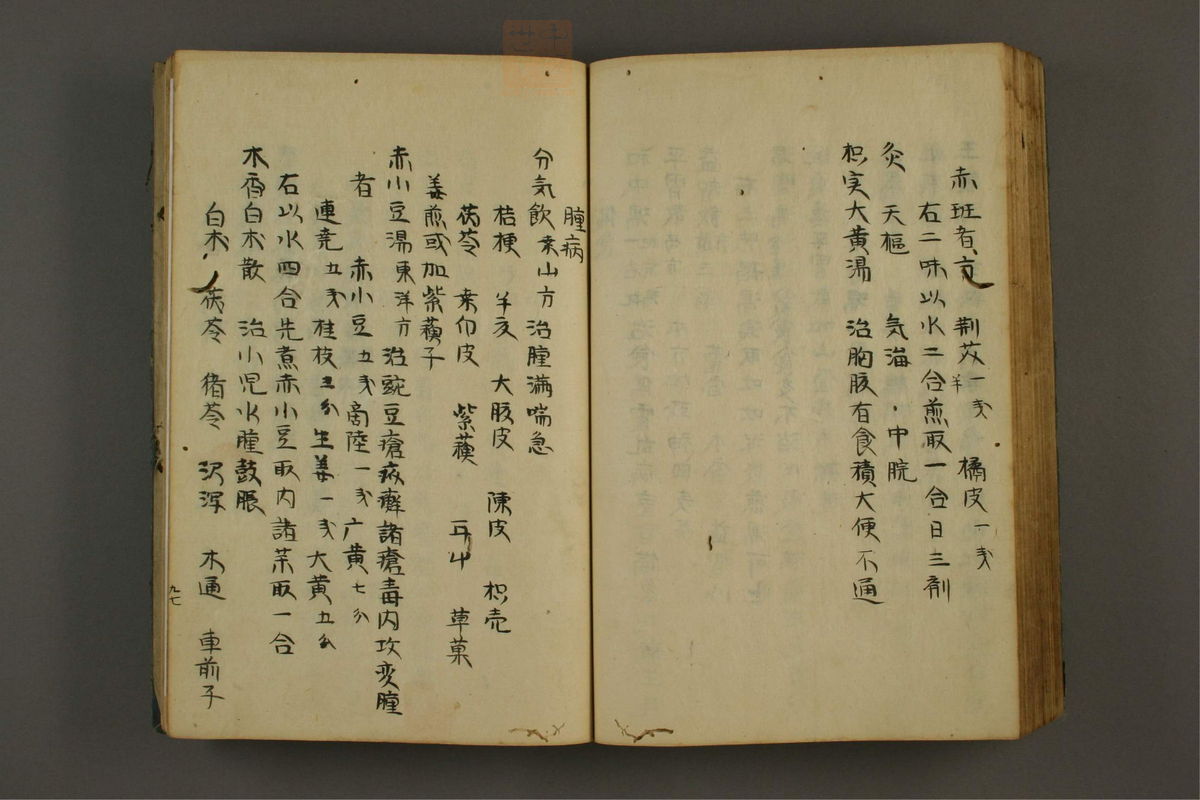 赤班者方 荆芥一戋半 橘皮一戋
右二味以水二合煎取一合日三剤
灸 天樞 気海 中脘
枳実大黄湯 治胸腹有食積大便不通
腫病
分気飲 治腫満喘急
桔梗 半夏 大腹皮 陳皮 枳壳
茯苓 桒白皮 紫蘓 草菓
姜煎或加紫蘓子
赤小豆湯東洋方 治豌豆瘡疥癬諸瘡毒内攻変腫
者 赤小豆五戋 商陸一戋 黄七分
連壳五戋 桂枝五分 生姜一戋 大黄五分
右以水四合先煮赤小豆取内諸薬取一合
木香白朮散 治小児水腫鼓脹
白朮 茯苓 猪苓 沢瀉 木通 車前子
九七